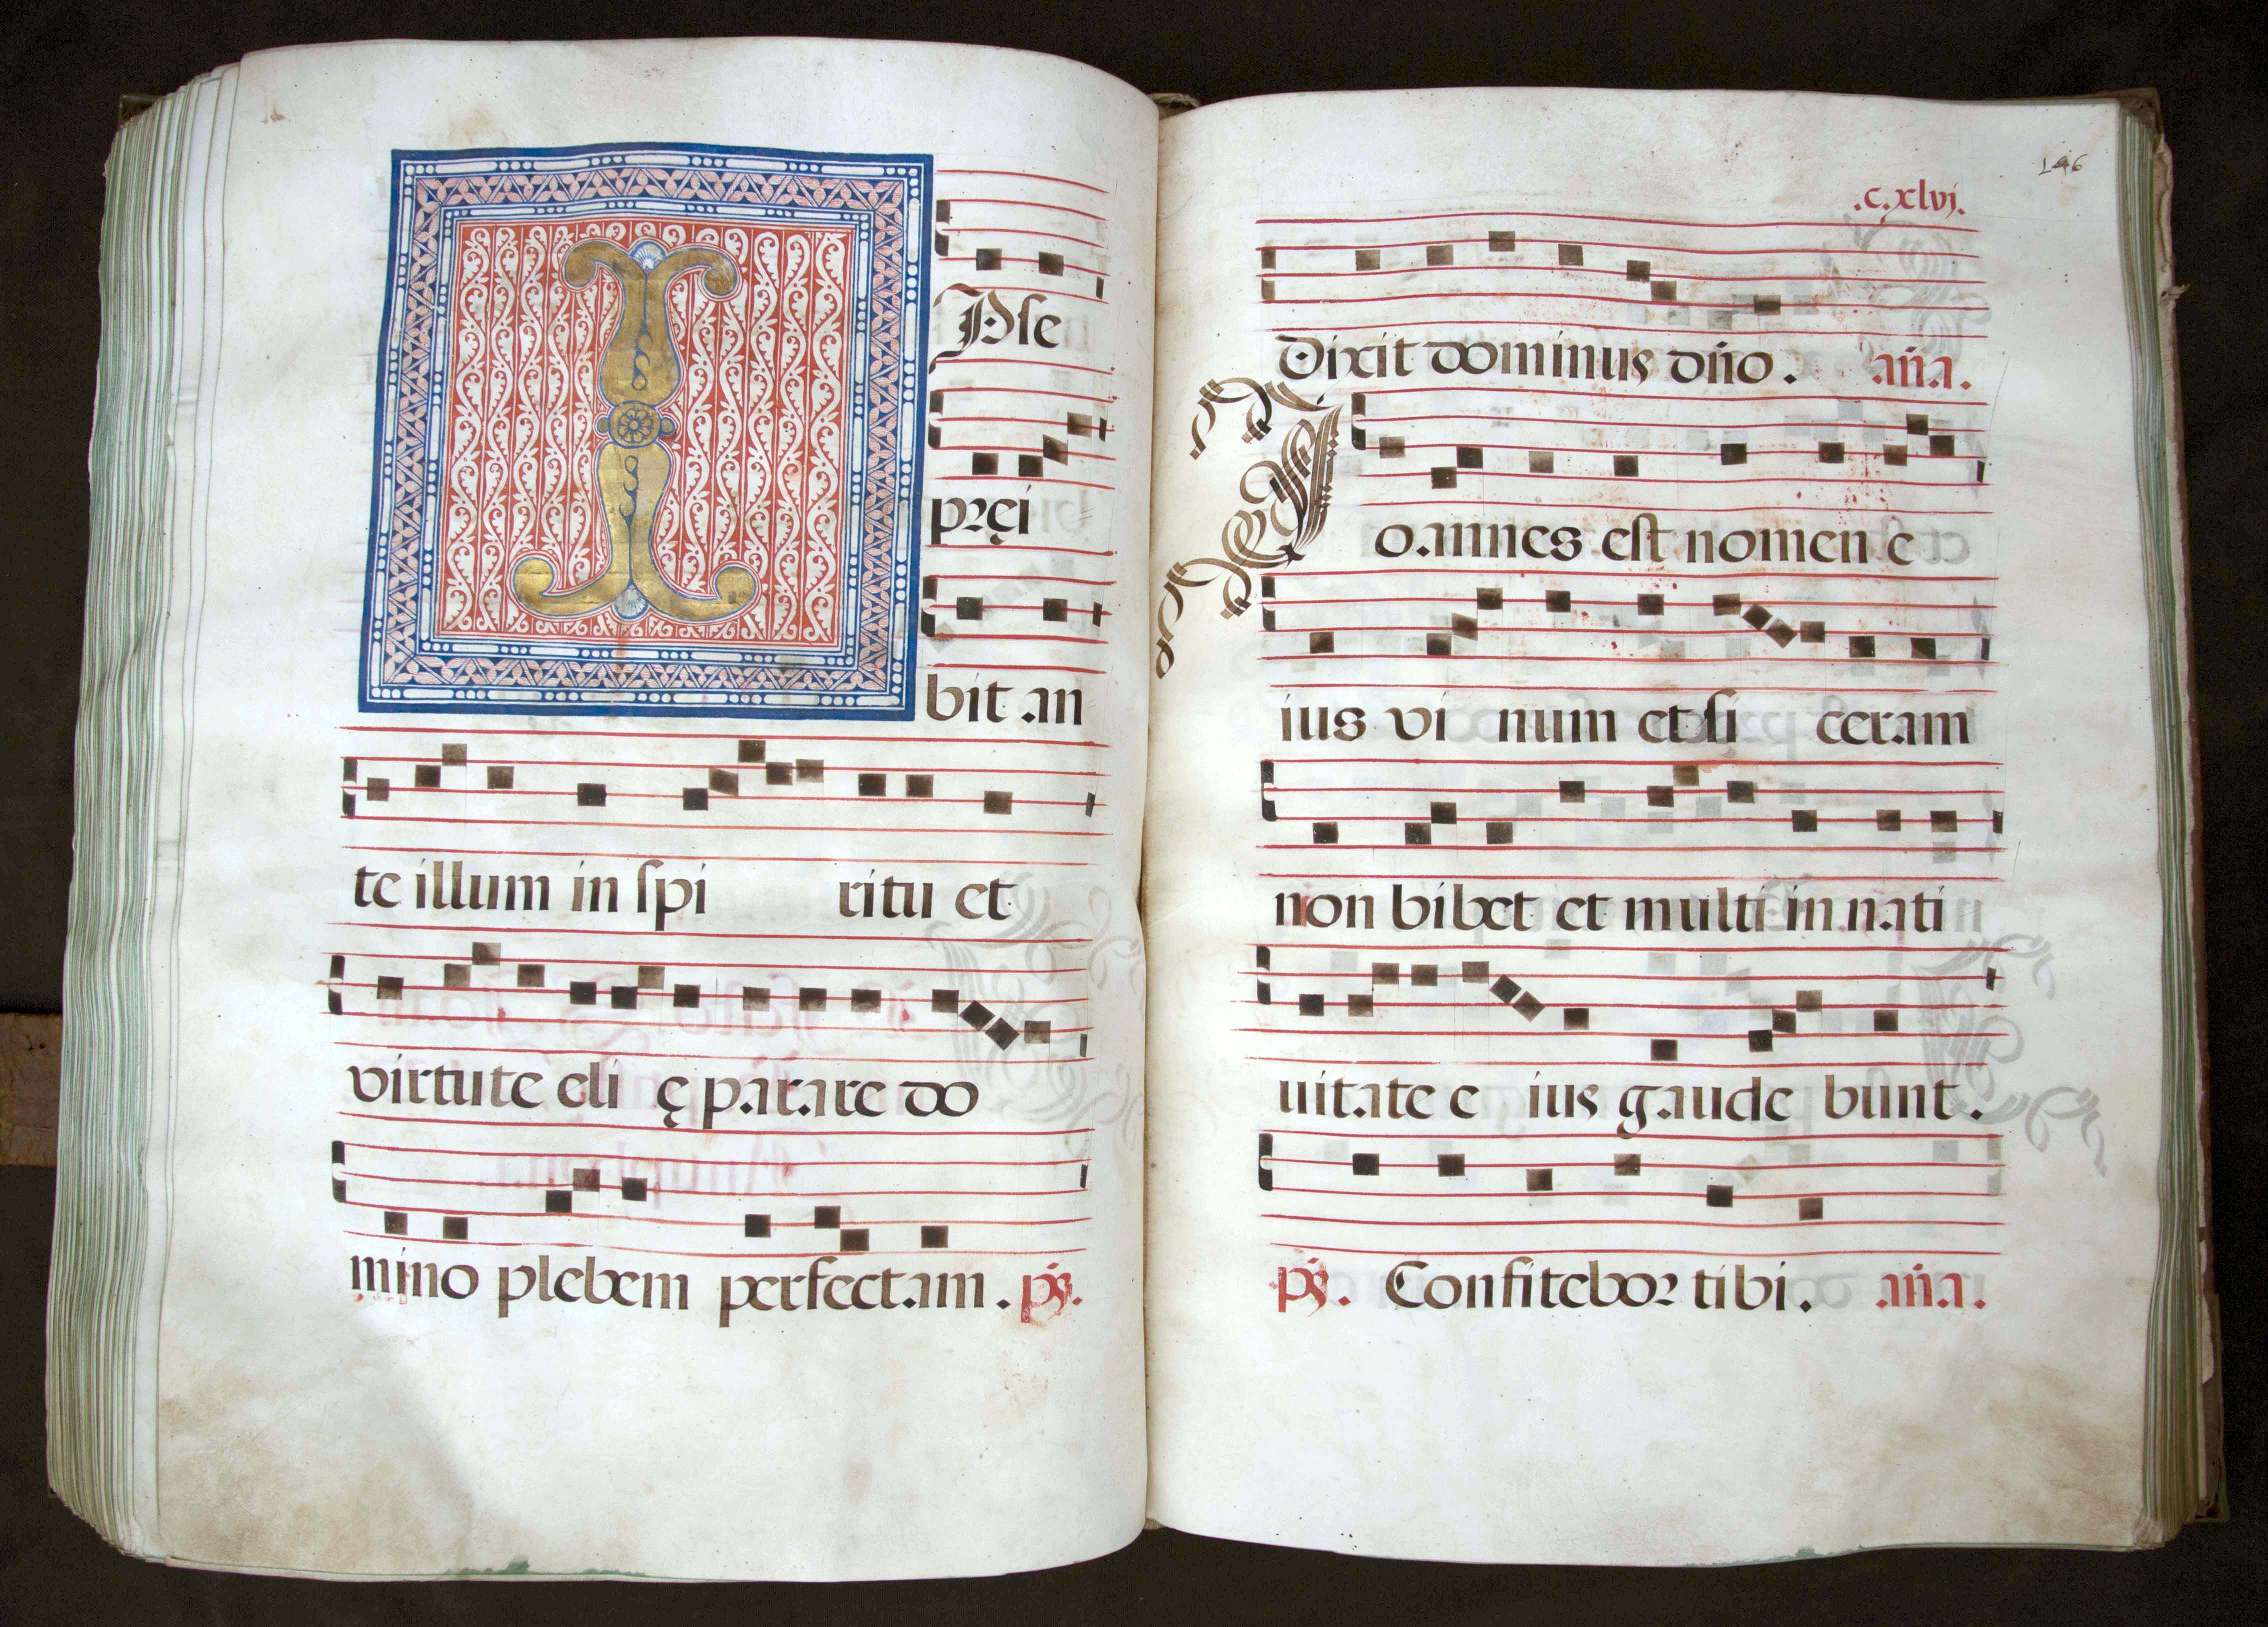 I Pſe
pręi
bit an
te illum in ſpi ritu et
virtute eli ę parare do
mino plebem perfectam. ps.
146
.c.xlvj.
Dixit dominus dño. aña.
Ioannes eſt nomen e
ius vi num et ſi ceram
non bibet et multi in nati
uitate e ius gaude bunt.
ps. Confitebor tibi. aña.